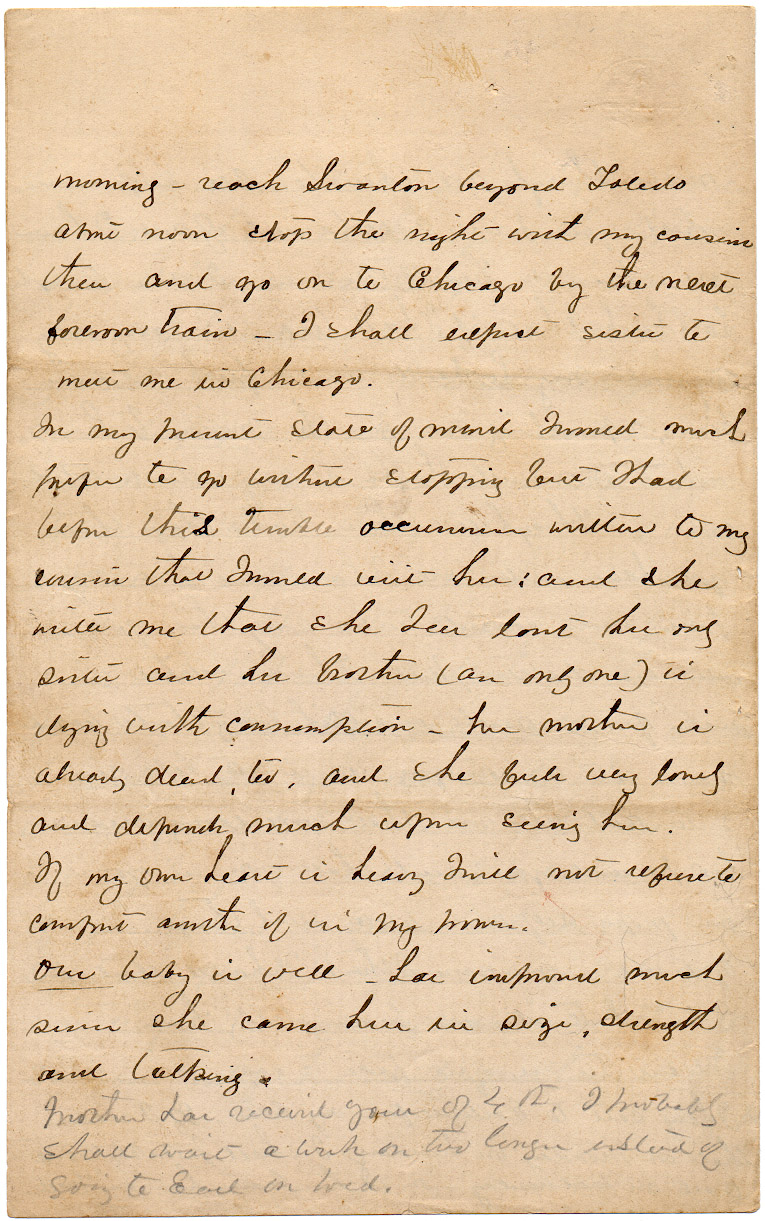 morning - reach Swanton beyond Toledo
about noon stop the night with my cousin
there and go on to Chicago by the next
forenoon train - I shall expect sister to
meet me in Chicago.
In my present state of mind I would much
prefer to go without stopping but I had
before this terrible occurrence written to my
cousin that I would visit her; and she
writes me that she has lost her only
sister and her brother (an only one) is
dying with consumption - her mother is
already dead, too, and she feels very lonely
and depends much upon seeing her.
If my own heart is heavy I will not refuse to
comfort another if in my power.
Our baby is well - has improved much
since she came here in size, strength
and talking.
Mother has received yours of 4th. I probably
shall wait a week or two longer instead of
going to Earl on Wed.